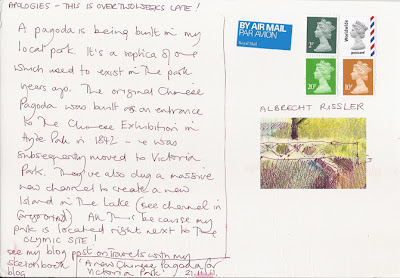 APOLOGIES - THIS IS OVER TWO WEEKS LATE!
A pagoda is being built in my
local park. It's a replica of one
which used to exist in the park
years ago. The original Chinese
Pagoda was built as an entrance
to the Chinese Exhibition in
Hyde Park in 1842 - & was
subsequently moved to Victoria
Park. They've also dug a massive
new channel to create a new
Island in the Lake (see channel in
foreground). All this because my
park is located right next to the
OLYMPIC SITE!
see my blog post on travels with my
sketchbook 'A new Chinese Pagoda for
blog Victoria Park'
BY AIR MAIL
PAR AVION
Royal Mail
2P
Worldwide
postcard
20P
10P
ALBRECHT RISSLER